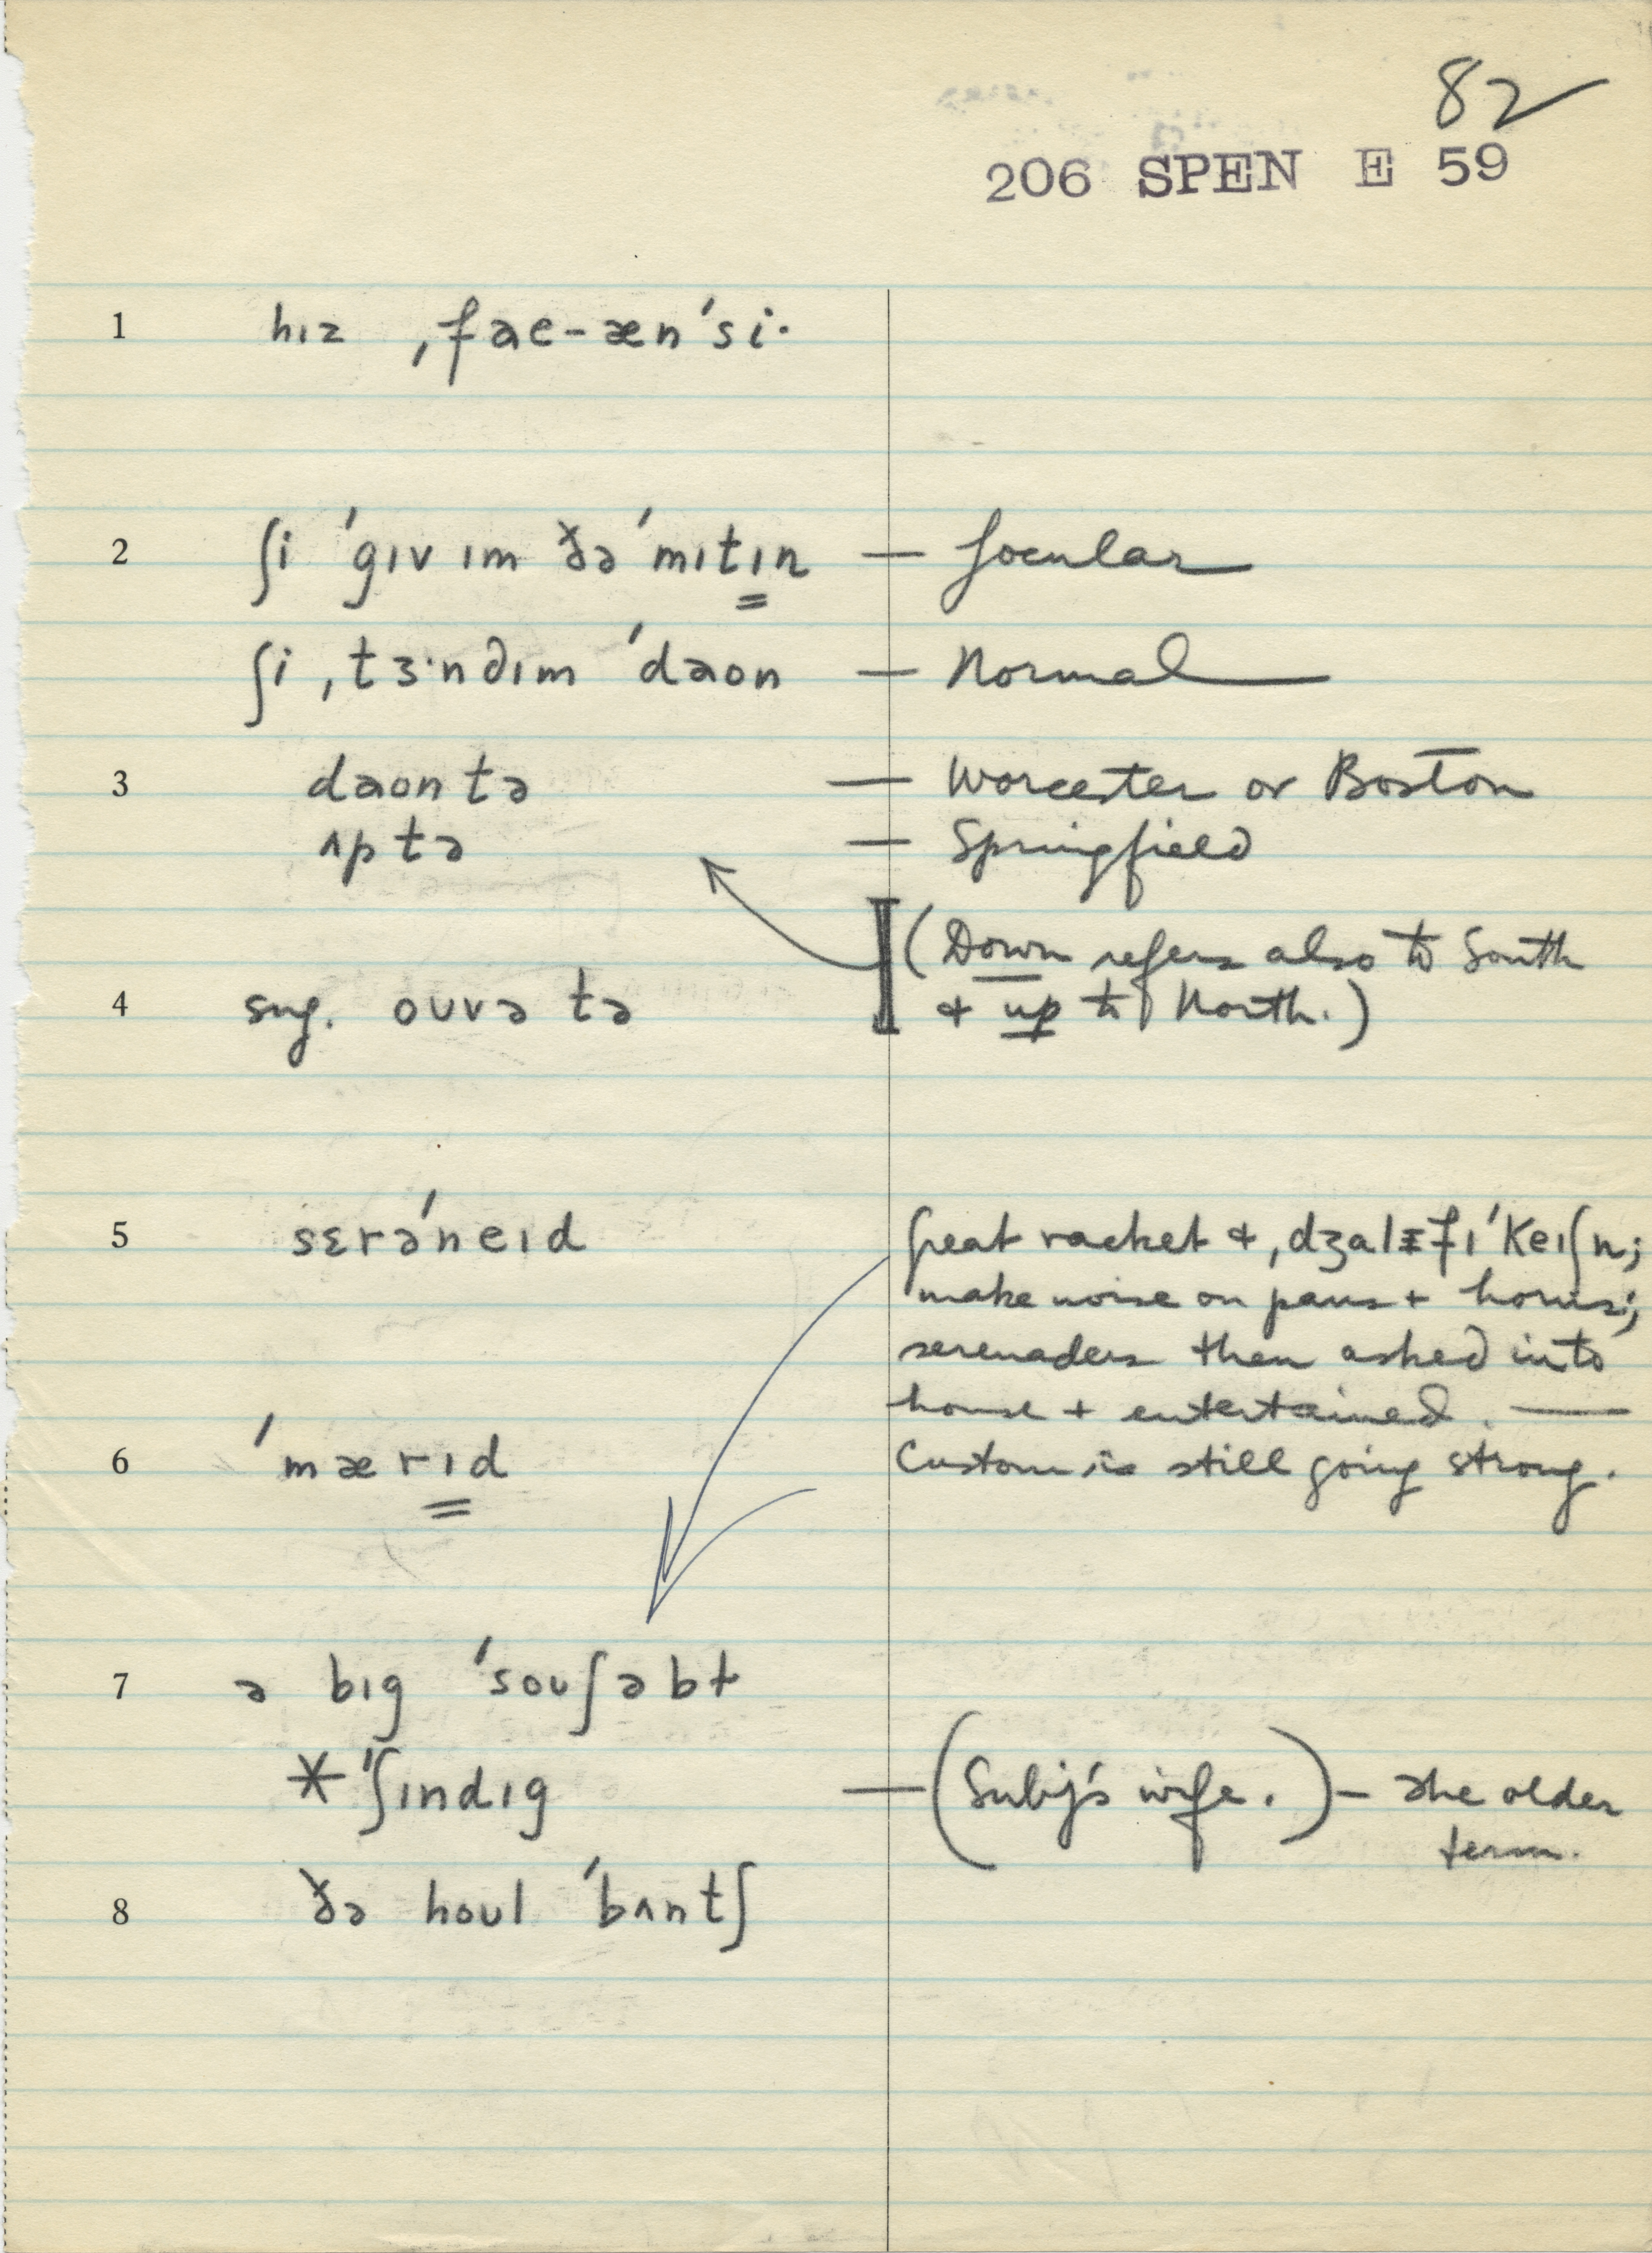 82
206 SPEN E 59
1 hɪz ˌfaɛ-æn'si·
2 ʃi 'gɪv ɪm ðə 'mɪtɪn — Jocular
ʃi ˌtɜ·nd ɪm 'daʊn — Normal
3 daʊn tə — Worcester or Boston
ʌp tə — Springfield
(Down refers also to South
4 sug. oʊvə tə & up to North.)
5 sɛrə'neɪd Great racket & ˌdʒalɪfɪ'keɪʃn;
make noise on pans + horns;
serenaders then asked into
house + entertained. —
6 'mærɪd Custom is still going strong.
7 ə bɪg 'soʊʃəbɫ
* 'ʃɪndɪg — (Subj's wife.) — The older
term.
8 ðə hoʊl 'bʌntʃ